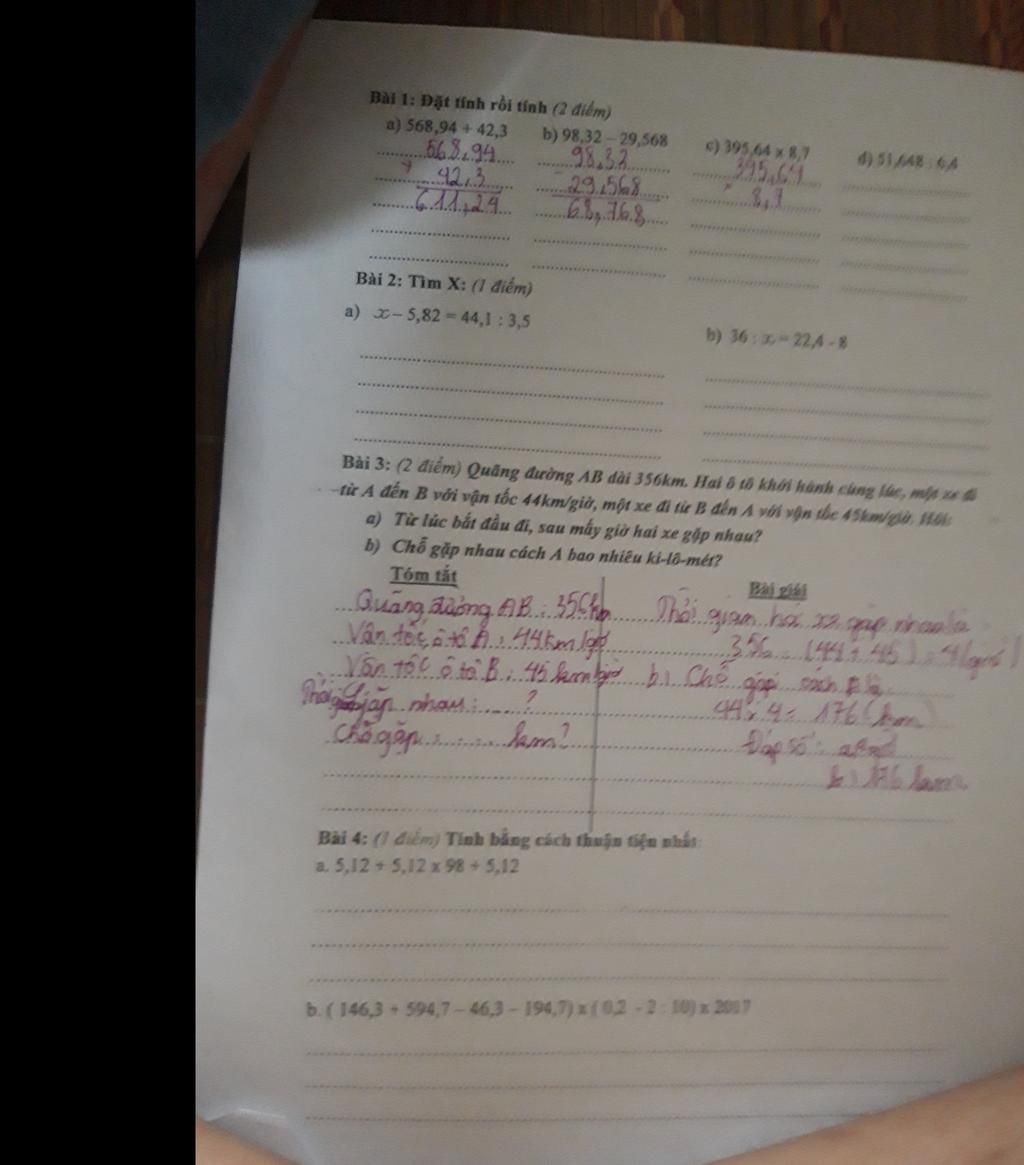 Bài 1: Đặt tính rồi tính (2 điểm)
a) 568,94 + 42,3 b) 98,32 – 29,568 c) 395,64 x 8,7 d) 51,648 : 6,4
568,94 98,32 395,64
+ 42,3 - 29,568 x 8,7
611,24 68,768
Bài 2: Tìm X: (1 điểm)
a) x – 5,82 = 44,1 : 3,5
b) 36 : x = 22,4 - 8
Bài 3: (2 điểm) Quãng đường AB dài 356km. Hai ô tô khởi hành cùng lúc, một xe đi
từ A đến B với vận tốc 44km/giờ, một xe đi từ B đến A với vận tốc 45km/giờ. Hỏi:
a) Từ lúc bắt đầu đi, sau mấy giờ hai xe gặp nhau?
b) Chỗ gặp nhau cách A bao nhiêu ki-lô-mét?
Tóm tắt Bài giải
Quãng đường AB : 356km Thời gian hai xe gặp nhau là
Vân tốc ô tô A : 44km/giờ 356 : (44 + 45) = 4 (giờ)
Vân tốc ô tô B : 45 km/giờ b) Chỗ gặp cách là
Thời gian gặp nhau : ....? 44 x 4 = 176 (km)
Chỗ gặp : ..... km? Đáp số : a
b) 176 km
Bài 4: (1 điểm) Tính bằng cách thuận tiện nhất:
a. 5,12 + 5,12 x 98 + 5,12
b. ( 146,3 + 594,7 – 46,3 – 194,7) x ( 0,2 - 2 : 10) x 2017